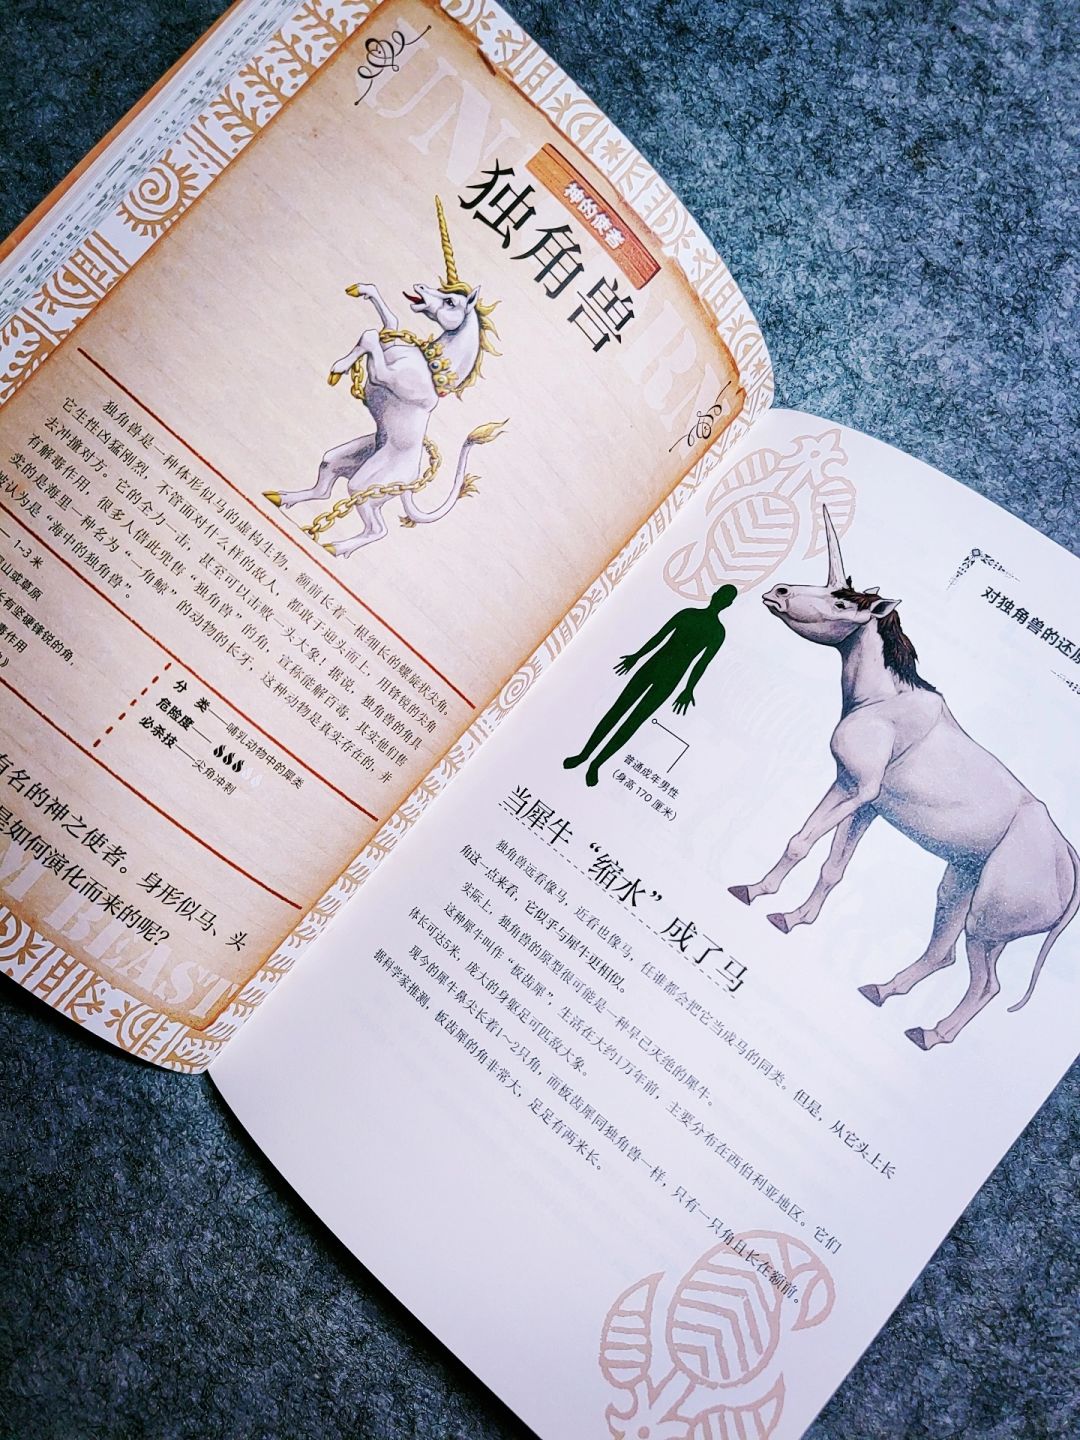 UN
RN
神的使者
独角兽
独角兽是一种体形似马的虚构生物，额前长着一根细长的螺旋状尖角。
它生性凶猛刚烈，不管面对什么样的敌人，都敢于迎头而上，用锋锐的尖角
去冲撞对方。它的全力一击，甚至可以击败一头大象！据说，独角兽的角具
有解毒作用，很多人借此兜售“独角兽”的角，宣称能解百毒，其实他们售
卖的是海里一种名为“一角鲸”的动物的长牙，这种动物是真实存在的，并
被认为是“海中的独角兽”。
1~3 米
山或草原
长有坚硬锋锐的角，
毒作用
》
分 类——哺乳动物中的犀类
危险度——
必杀技——尖角冲刺
有名的神之使者。身形似马、头
是如何演化而来的呢？
BEAST
对独角兽的还原
普通成年男性
（身高 170 厘米）
当犀牛“缩水”成了马
独角兽远看像马，近看也像马，任谁都会把它当成马的同类。但是，从它头上长
角这一点来看，它似乎与犀牛更相似。
实际上，独角兽的原型很可能是一种早已灭绝的犀牛。
这种犀牛叫作“板齿犀”，生活在大约1万年前，主要分布在西伯利亚地区。它们
体长可达5米，庞大的身躯足可匹敌大象。
现今的犀牛鼻尖长着1~2只角，而板齿犀同独角兽一样，只有一只角且长在额前。
据科学家推测，板齿犀的角非常大，足足有两米长。